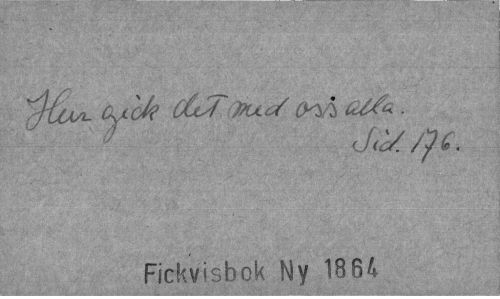 Hur gick det med oss alla.
Sid. 176.
Fickvisbok Ny 1864